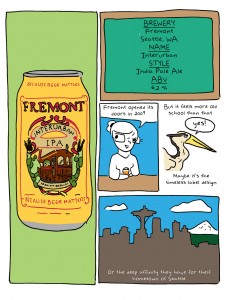 BECAUSE BEER MATTERS
FREMONT
INTERURBAN
IPA
BECAUSE BEER MATTERS
BREWERY
Fremont
Seattle, WA
NAME
Interurban
STYLE
India Pale Ale
ABV
6.2 %
Fremont opened its
doors in 2009
But it feels more old
school than that
yes!
Maybe it's the
timeless label design
Or the deep affinity they have for their
hometown of Seattle